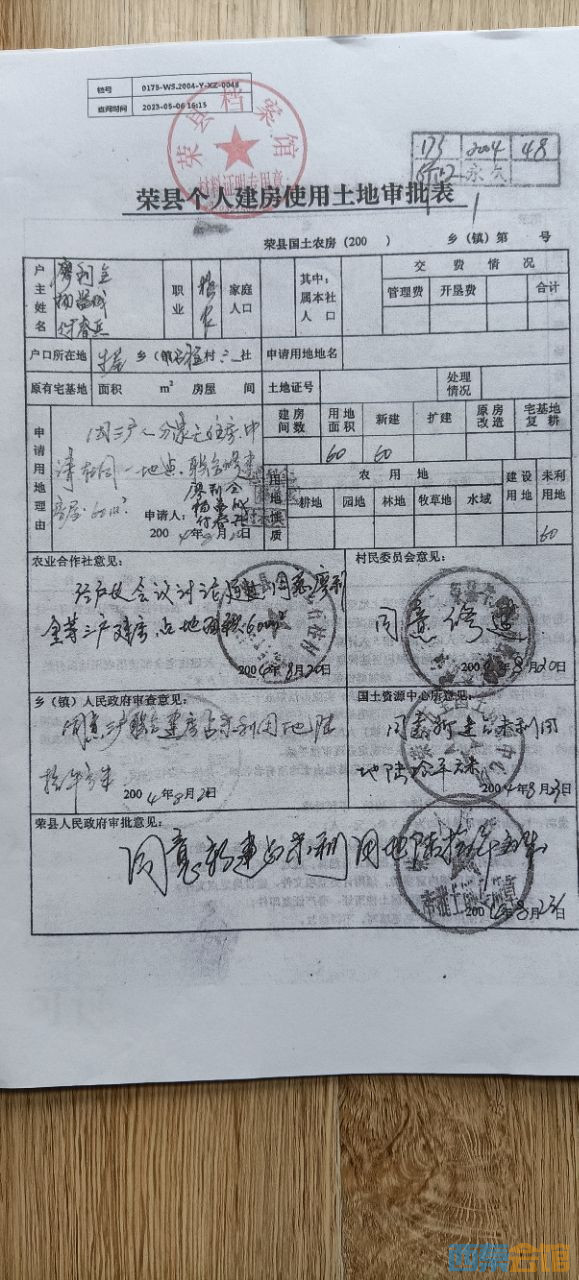 档号 0175-WS.2004-Y-XZ-0048
查阅时间 2023-05-06 16:15
荣县档案馆
材料证明专用章
175 2004 48
永久
荣县个人建房使用土地审批表
荣县国土农房(200 ) 乡(镇)第 号
户主姓名 廖利全 职业 务农 家庭人口 其中:属本社人口 交费情况
管理费 开垦费 合计
户口所在地 乡(镇) 村 社 申请用地地名
原有宅基地 面积 m² 房屋 间 土地证号 处理情况
申请用地理由
因三户人分家无住房,申
请在同一地点,联合修建
房屋60m².
申请人:廖利全
2004年8月20日
建房间数 用地面积 新建 扩建 原房改造 宅基地复耕
60 60
用地性质 农用地 建设用地 未利用地
耕地 园地 林地 牧草地 水域
60
农业合作社意见:
经户长会议讨论通过同意廖利
全等三户建房占地面积60m²
2004年8月20日
村民委员会意见:
同意修建
2004年8月20日
乡(镇)人民政府审查意见:
同意三户联合建房占未利用地陆
拾平方米
2004年8月2日
国土资源中心所意见:
同意新建占未利用
地陆拾平方米
2004年8月23日
荣县人民政府审批意见:
同意新建占未利用地陆拾平方米
审批工作专用章
2004年8月23日